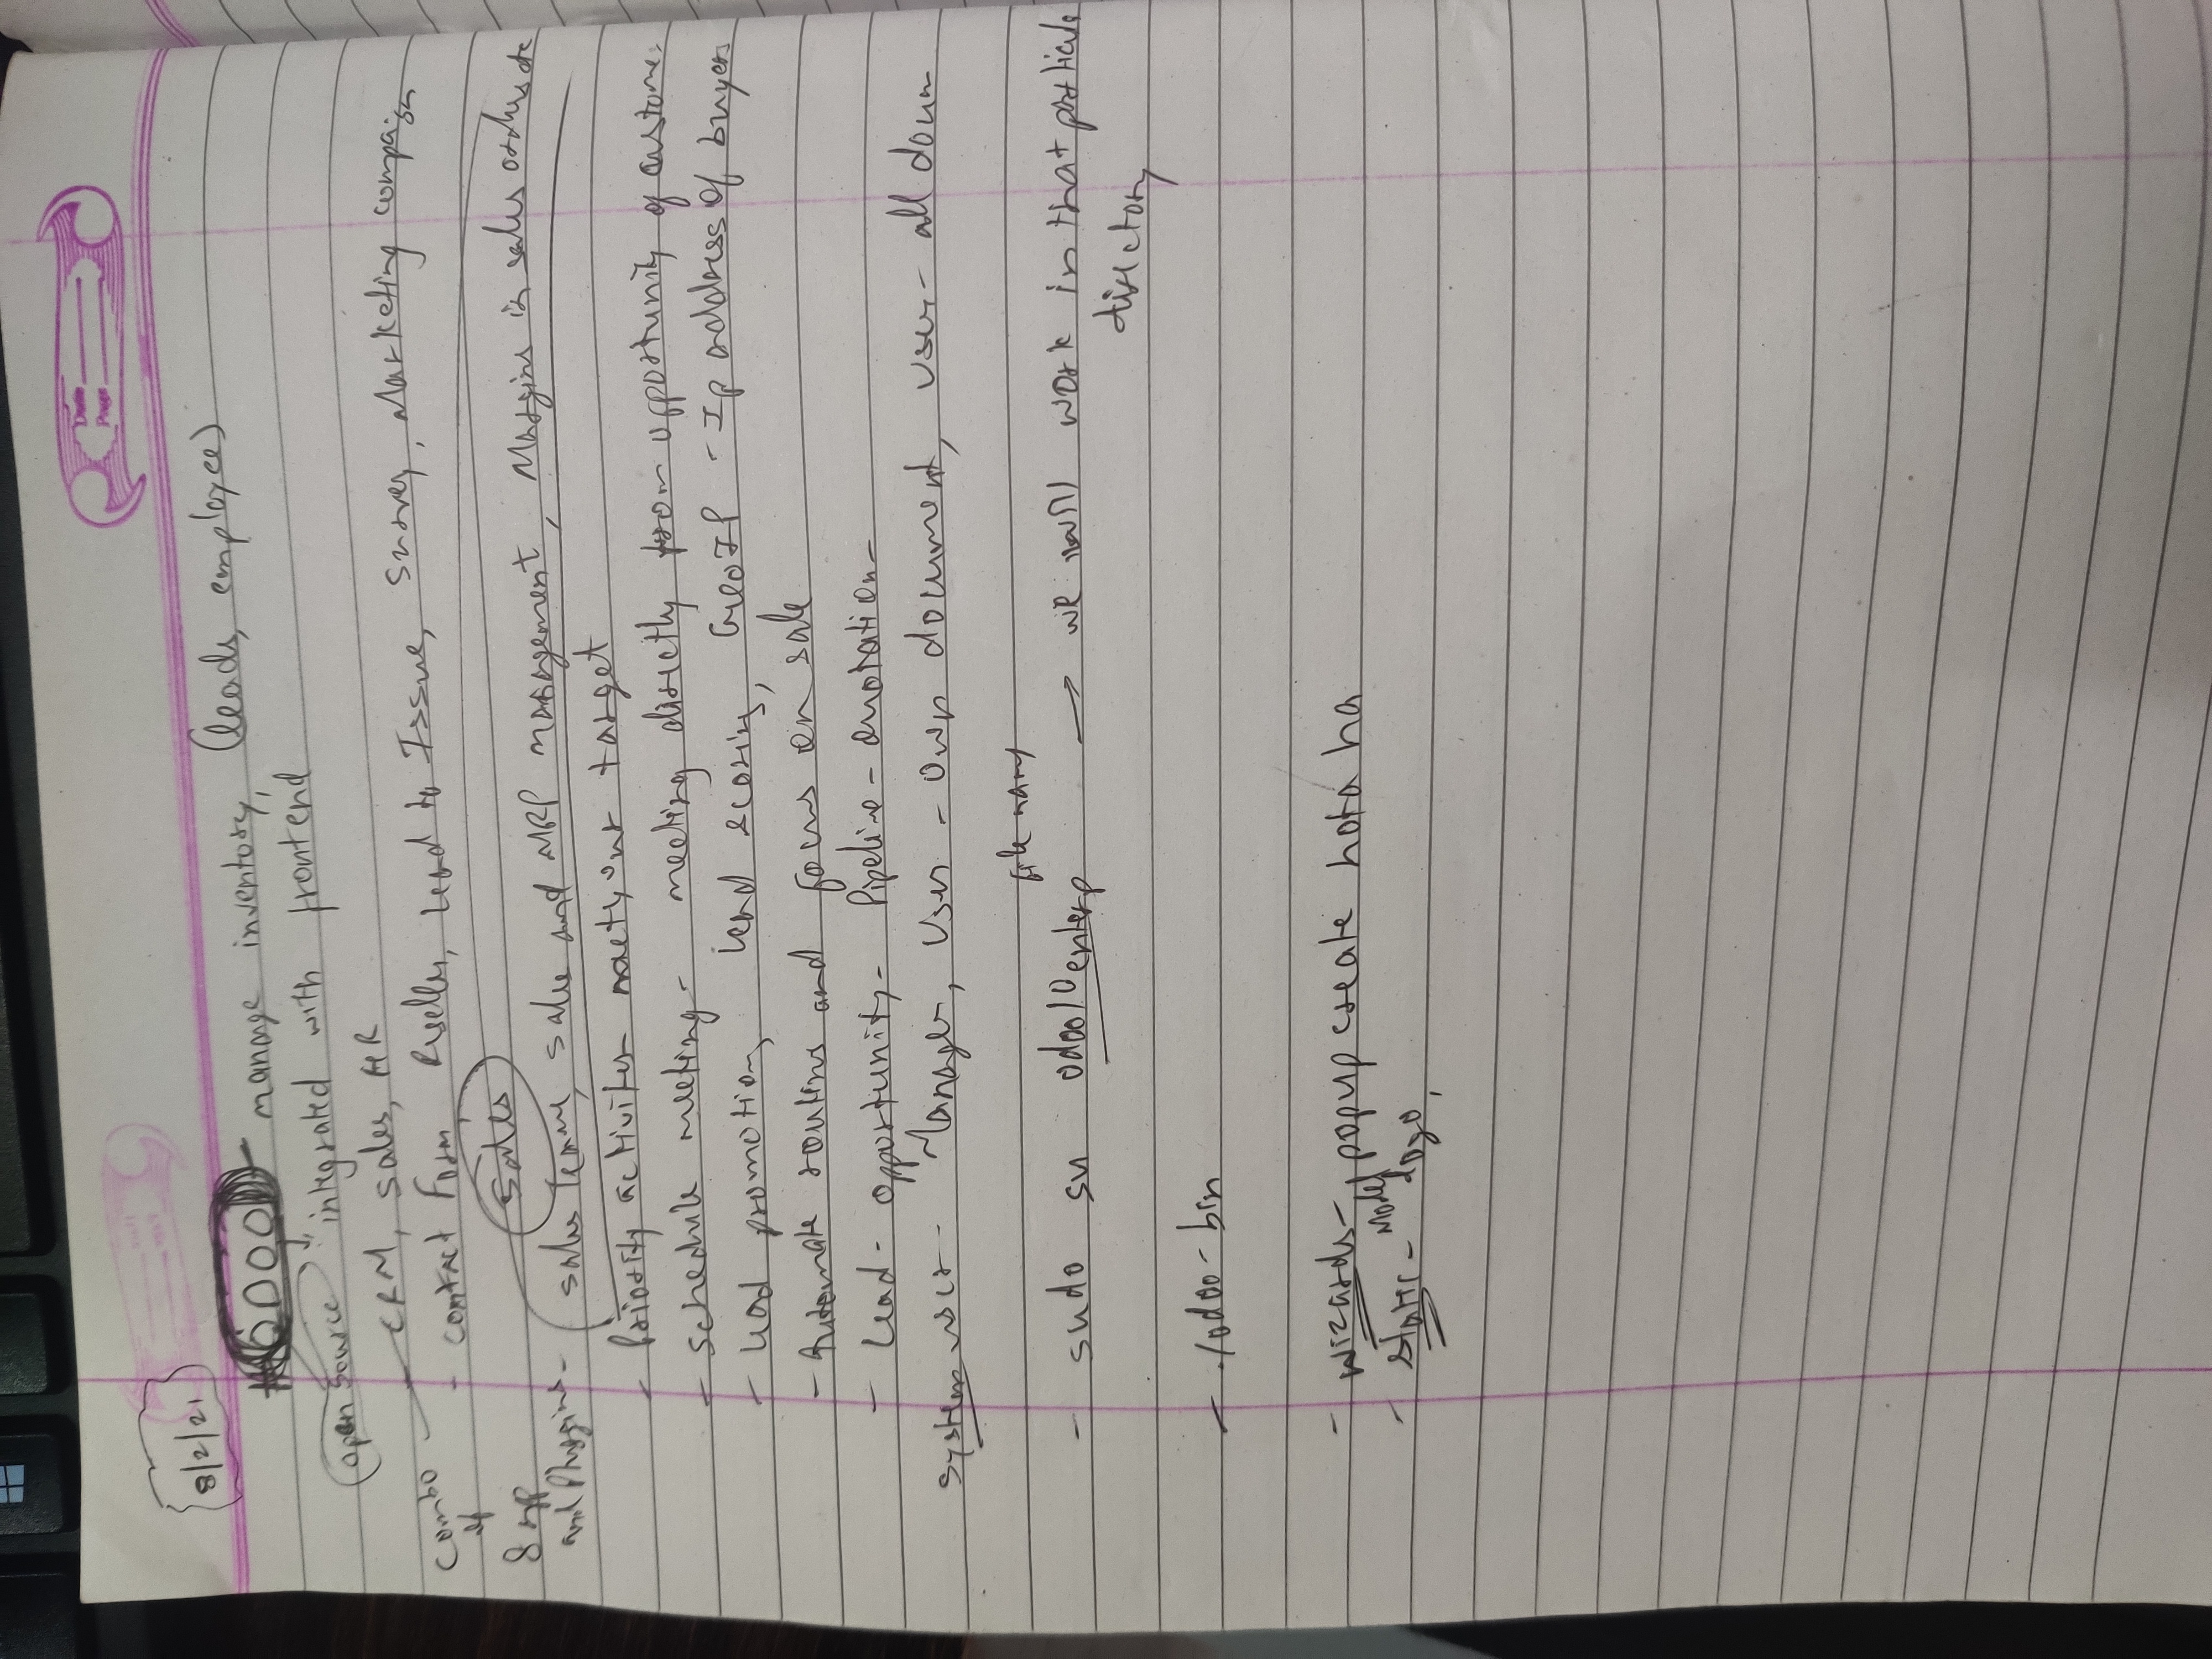 Date
Page
8/2/21
ODOO - manage inventory, (leads, employee)
open source integrated with frontend
- CRM, sales, HR
combo of 8 and Pluggins
- contact Form, Lead to Issue, Survey, Marketing compaign
Sales
- sales team, sales and MRP management, Margins in sales orders etc
- Priority activities target
- schedule meeting - meeting directly from opportunity of custome
- Lead promotion, Lead scoring, GeoIP - Ip address of buyers
- Automate routins and focus on sale
- Lead - opportunity - Pipeline - Quotation -
System user - Manager, User - own document, User - all doum
file name
- sudo su odoo10enterp → we will work in that particula
directory
- ./odoo-bin
- wizards - popup create hota ha
- static - Model logo,